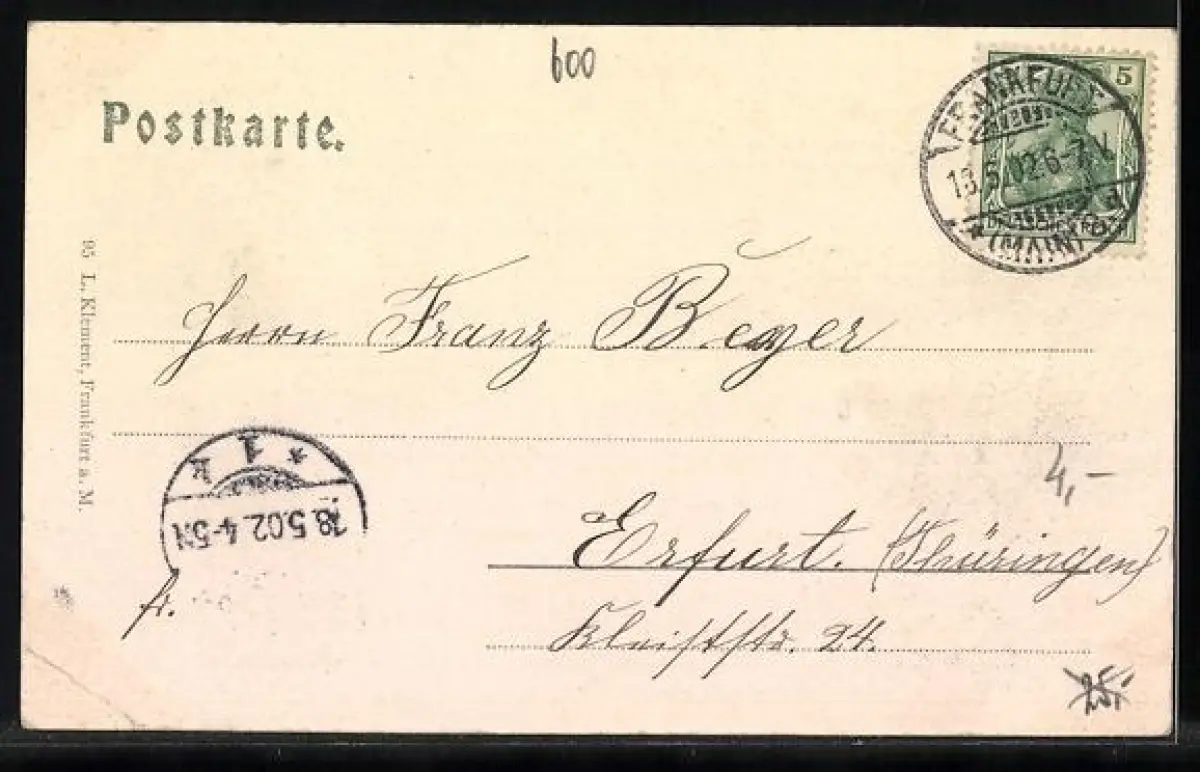 600
Postkarte.
5
FRANKFURT
18.5.02.6-7V.
* (MAIN) *
Herrn Franz Beyer
95 L. Klement, Frankfurt a. M.
1
k
18.5.02.4-5N
4,-
Erfurt. (Thüringen)
fr.
Kleiststr. 24.
25,-